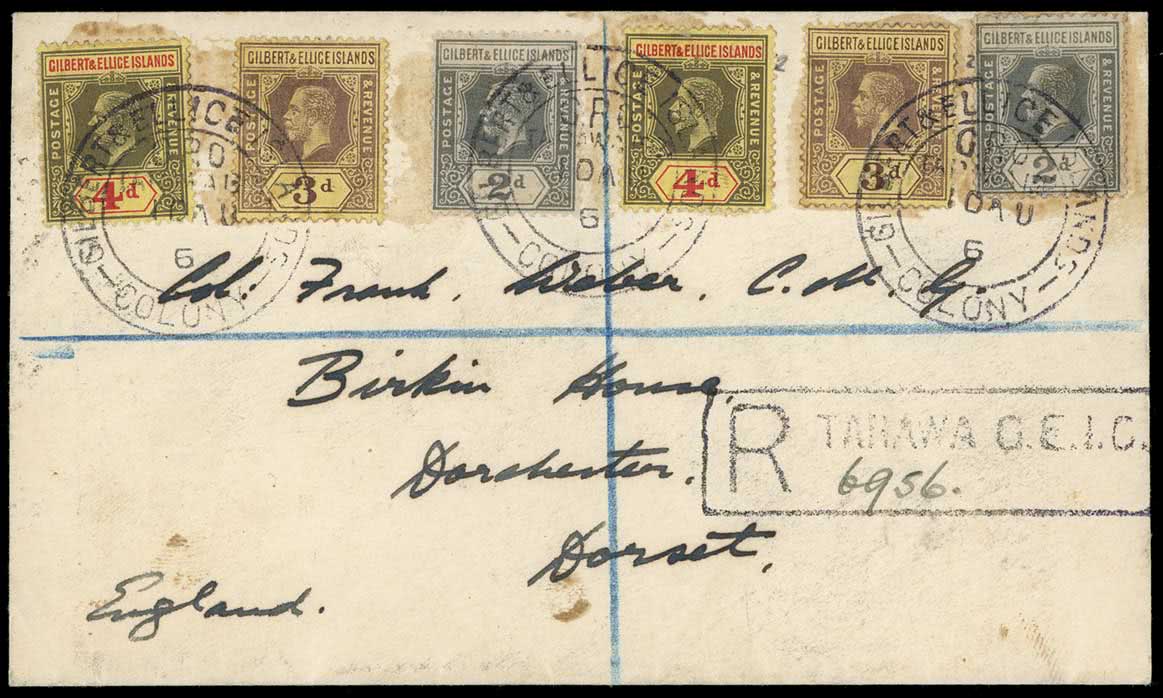 GILBERT & ELLICE ISLANDS POSTAGE & REVENUE 4d
GILBERT & ELLICE ISLANDS POSTAGE & REVENUE 3d
GILBERT & ELLICE ISLANDS POSTAGE & REVENUE 2d
GILBERT & ELLICE ISLANDS POSTAGE & REVENUE 4d
GILBERT & ELLICE ISLANDS POSTAGE & REVENUE 3d
GILBERT & ELLICE ISLANDS POSTAGE & REVENUE 2d
COLONY
6
COLONY
6
COLONY
6
Col. Frank. Weber, C. M. G.
Birkin House,
Dorchester,
Dorset,
England.
R TARAWA G.E.I.C.
6956.